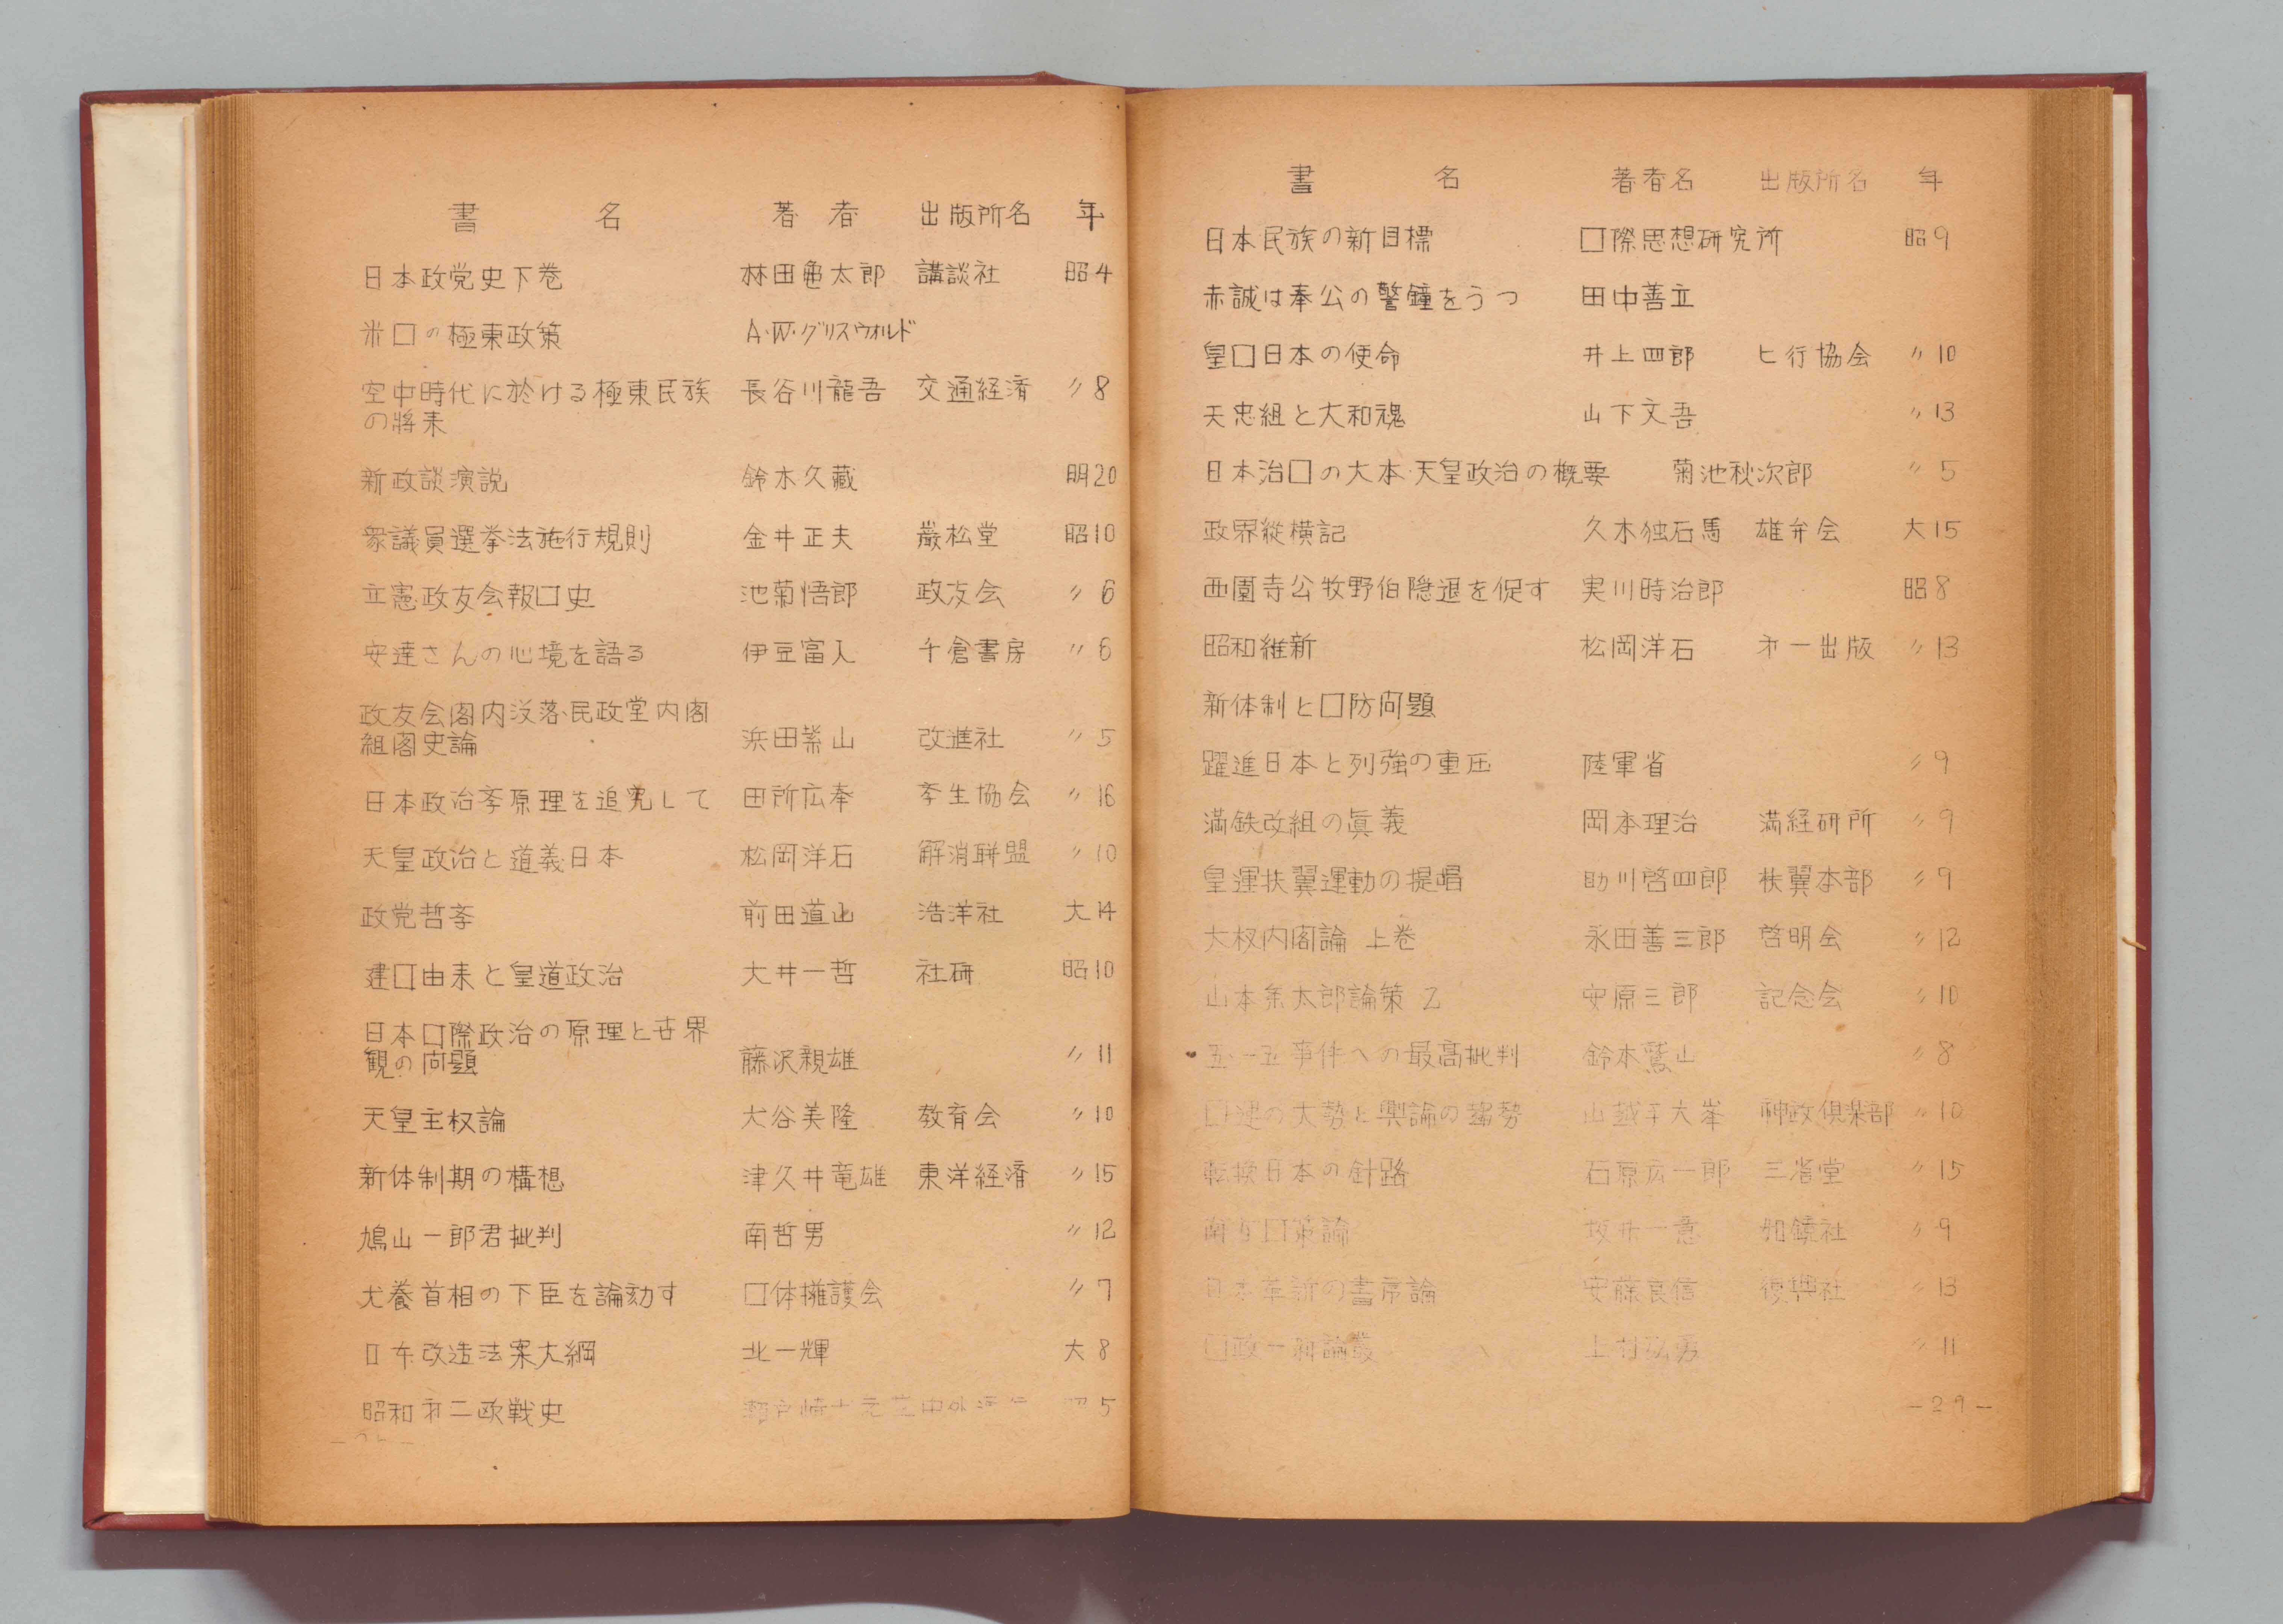 書 名 著 者 出版所名 年
日本政党史下巻 林田亀太郎 講談社 昭4
米囗の極東政策 A・W・グリスウオルド
空中時代に於ける極東民族 長谷川龍吾 交通経済 〃8
の將来
新政談演説 鈴木久藏 明20
衆議員選挙法施行規則 金井正夫 巌松堂 昭10
立憲政友会報囗史 池菊悟郎 政友会 〃6
安達さんの心境を語る 伊豆富人 千倉書房 〃6
政友会閣内没落・民政堂内閣
組閣史論 浜田紫山 改進社 〃5
日本政治斈原理を追究して 田所広奉 斈生協会 〃16
天皇政治と道義日本 松岡洋石 解消聨盟 〃10
政党哲斈 前田道 浩洋社 大14
建囗由来と皇道政治 大井一哲 社研 昭10
日本囗際政治の原理と世界
観の问題 藤沢親雄 〃11
天皇主权論 大谷美隆 教育会 〃10
新体制期の構想 津久井竜雄 東洋経済 〃15
鳩山一郎君批判 南哲男 〃12
犬養首相の下臣を論劾す 囗体擁護会 〃7
日本改造法案大綱 北一輝 大8
昭和才二欧戦史 5
書 名 著者名 出版所名 年
日本民族の新目標 囗際思想研究所 昭9
赤誠は奉公の警鐘をうつ 田中善立
皇囗日本の使命 井上四郎 ヒ行協会 〃10
天忠組と大和魂 山下文吾 〃13
日本治囗の大本・天皇政治の概要 菊池秋次郎 〃5
政界縦横記 久木独石馬 雄弁会 大15
西園寺公牧野伯隠退を促す 実川時治郎 昭8
昭和維新 松岡洋石 才一出版 〃13
新体制と囗防问題
躍進日本と列強の重圧 陸軍省 〃9
満鉄改組の眞義 岡本理治 満経研所 〃9
皇運扶翼運動の提唱 助川啓四郎 扶翼本部 〃9
大权内閣論 上巻 永田善三郎 啓明会 〃12
山本条太郎論策 乙 安原三郎 記念会 〃10
五一五事件への最高批判 鈴木鷲山 〃8
囗運の大勢と輿論の趨勢 大峯 神政倶楽部 〃10
転換日本の針路 石原広一郎 三省堂 〃15
一意 如鏡社 〃9
日本革新の書序論 安藤良信 復興社 〃13
囗政一新論叢 〃11
-29-